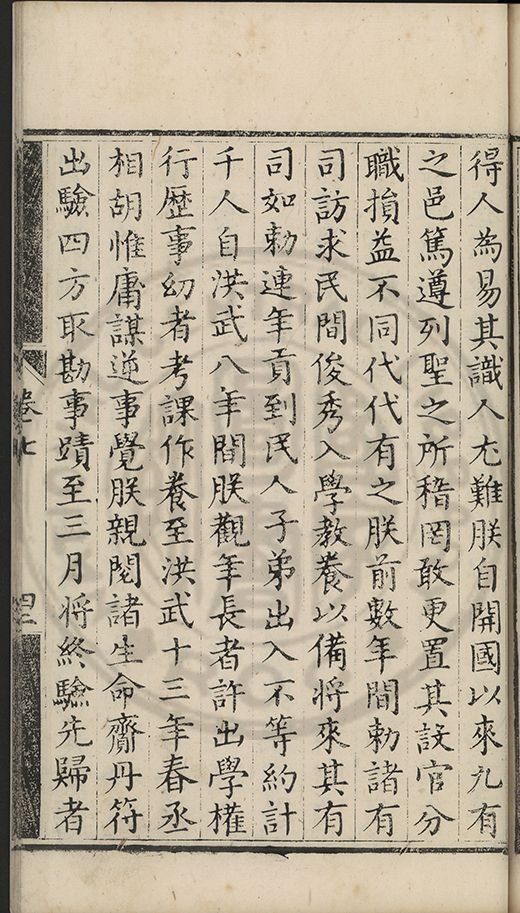 得人為易其識人尤難朕自開國以來凡有
之邑篤遵列聖之所稽罔敢更置其設官分
職損益不同代代有之朕前數年間勅諸有
司訪求民間俊秀入學教養以備將來其有
司如勅連年貢到民人子弟出入不等約計
千人自洪武八年間朕觀年長者許出學權
行歷事幼者考課作養至洪武十三年春丞
相胡惟庸謀逆事覺朕親閱諸生命齎丹符
出驗四方取勘事蹟至三月將終驗先歸者
卷七
四二